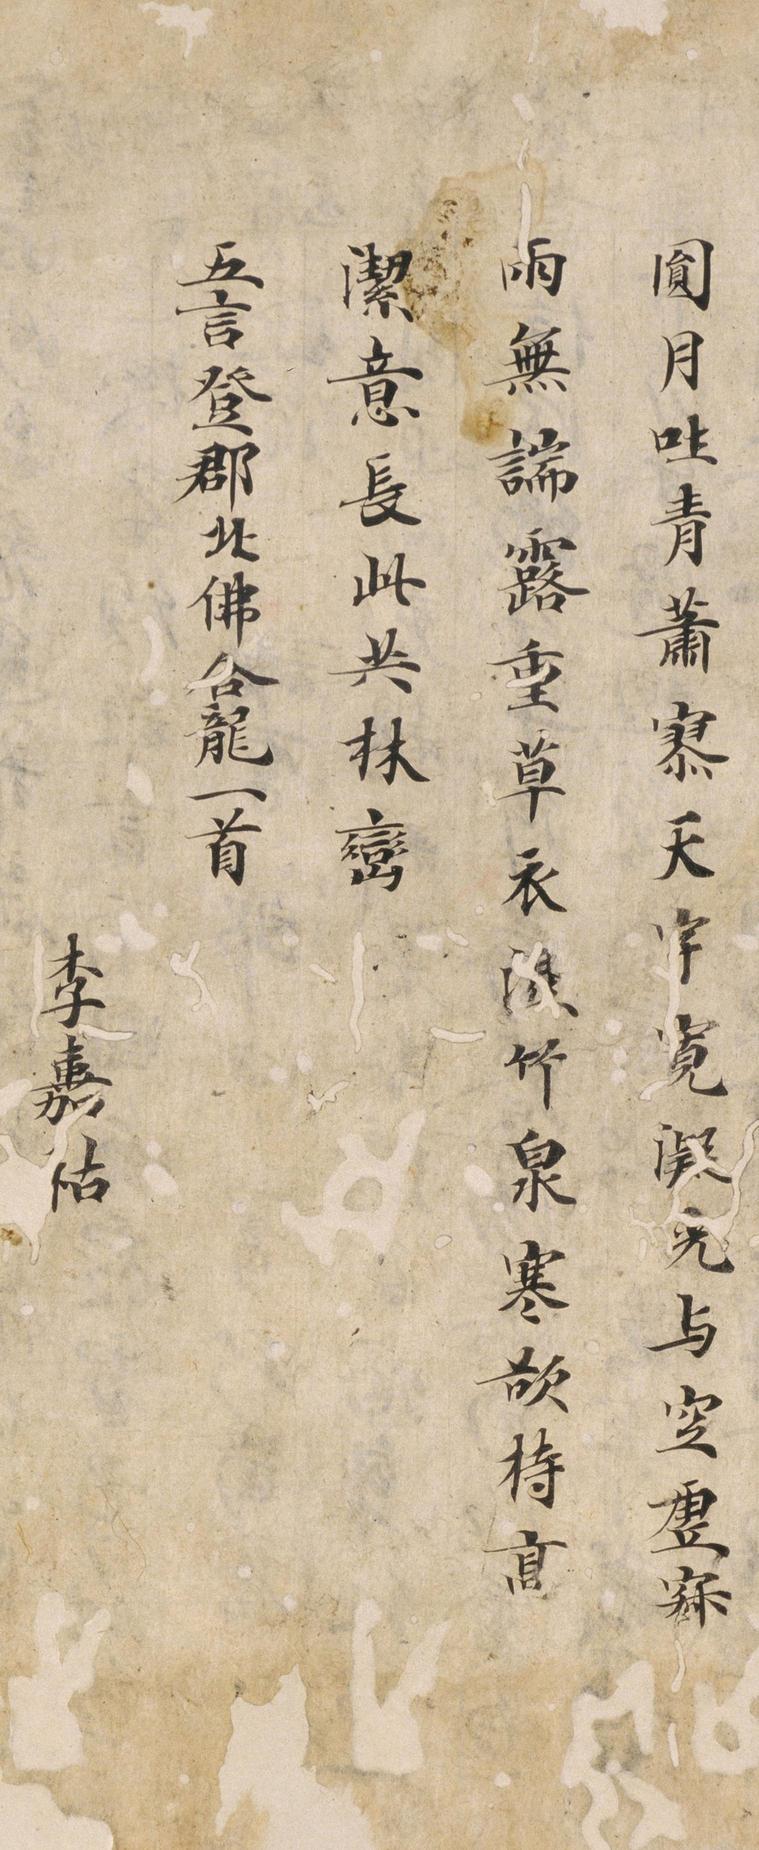 圓月吐青蕭寥天宇寬凝元与空虛寂
兩無端露重草衣濕竹泉寒欲持高
潔意長此共林巒
五言登郡北佛合龍一首
李嘉祐